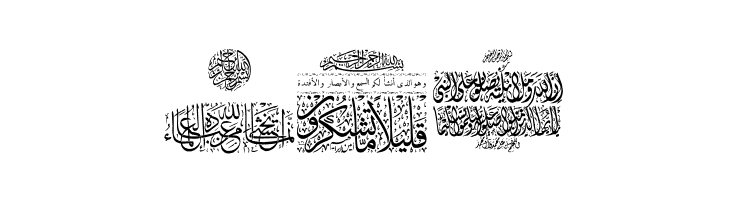 بسم الله الرحمن الرحيم
إن الله وملائكته يصلون على النبي
يا أيها الذين آمنوا صلوا عليه وسلموا تسليما
بسم الله الرحمن الرحيم
وهو الذى أنشأ لكم السمع والأبصار والأفئدة
قليلا ما تشكرون
بسم الله الرحمن الرحيم
إنما يخشى الله من عباده العلماء